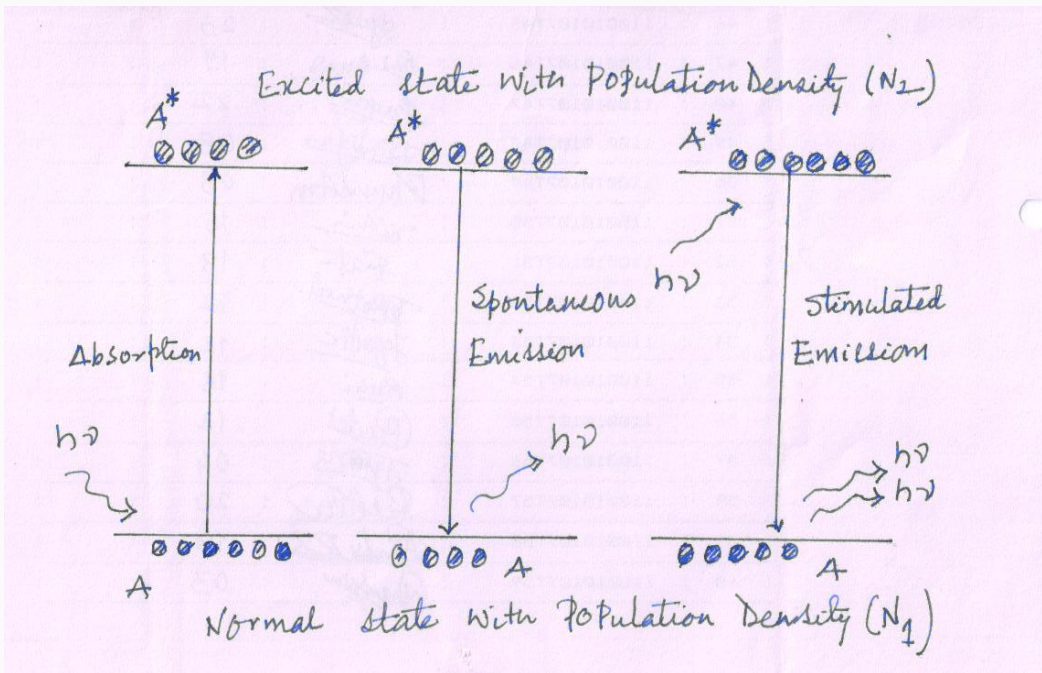 Excited State With Population Density (N2)
A*
A*
A*
hν
Spontaneous
Emission
Stimulated
Emission
Absorption
hν
hν
hν
hν
A
A
A
Normal State With Population Density (N1)